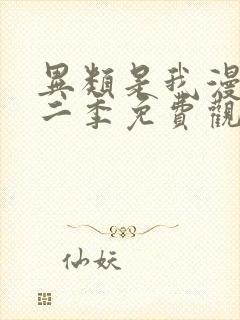 異類是我漫
二季免費觀
仙妖